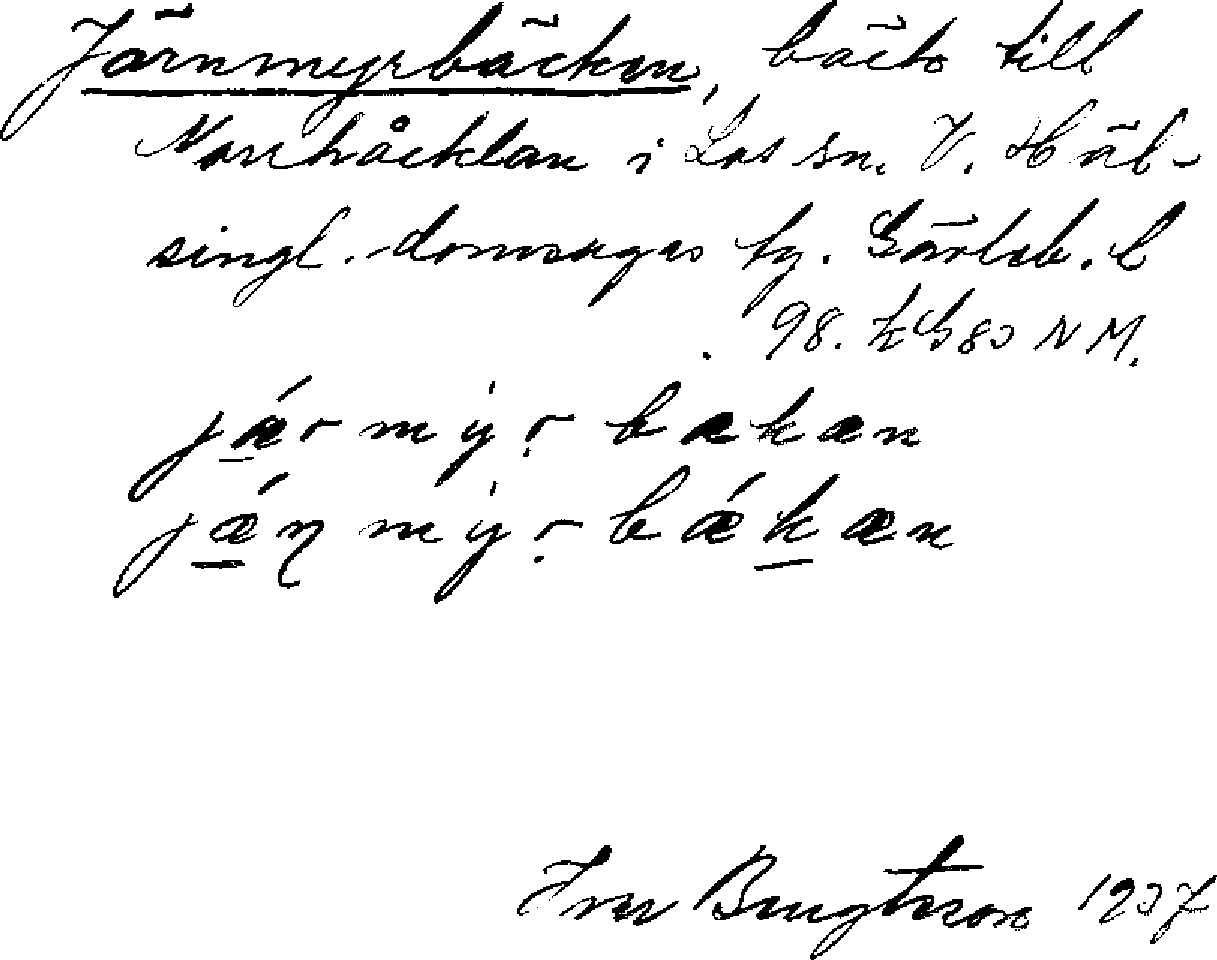 Järnmyrbäcken, bäck till
Norrhåcklan i Los sn. V. Häl-
singl. domsagas tg. Gävleb. l
98. k G 80 NM.
jǽr mỳr bækæn
jǽn mỳr bǽkæn
Ivar Bengtsson 1937